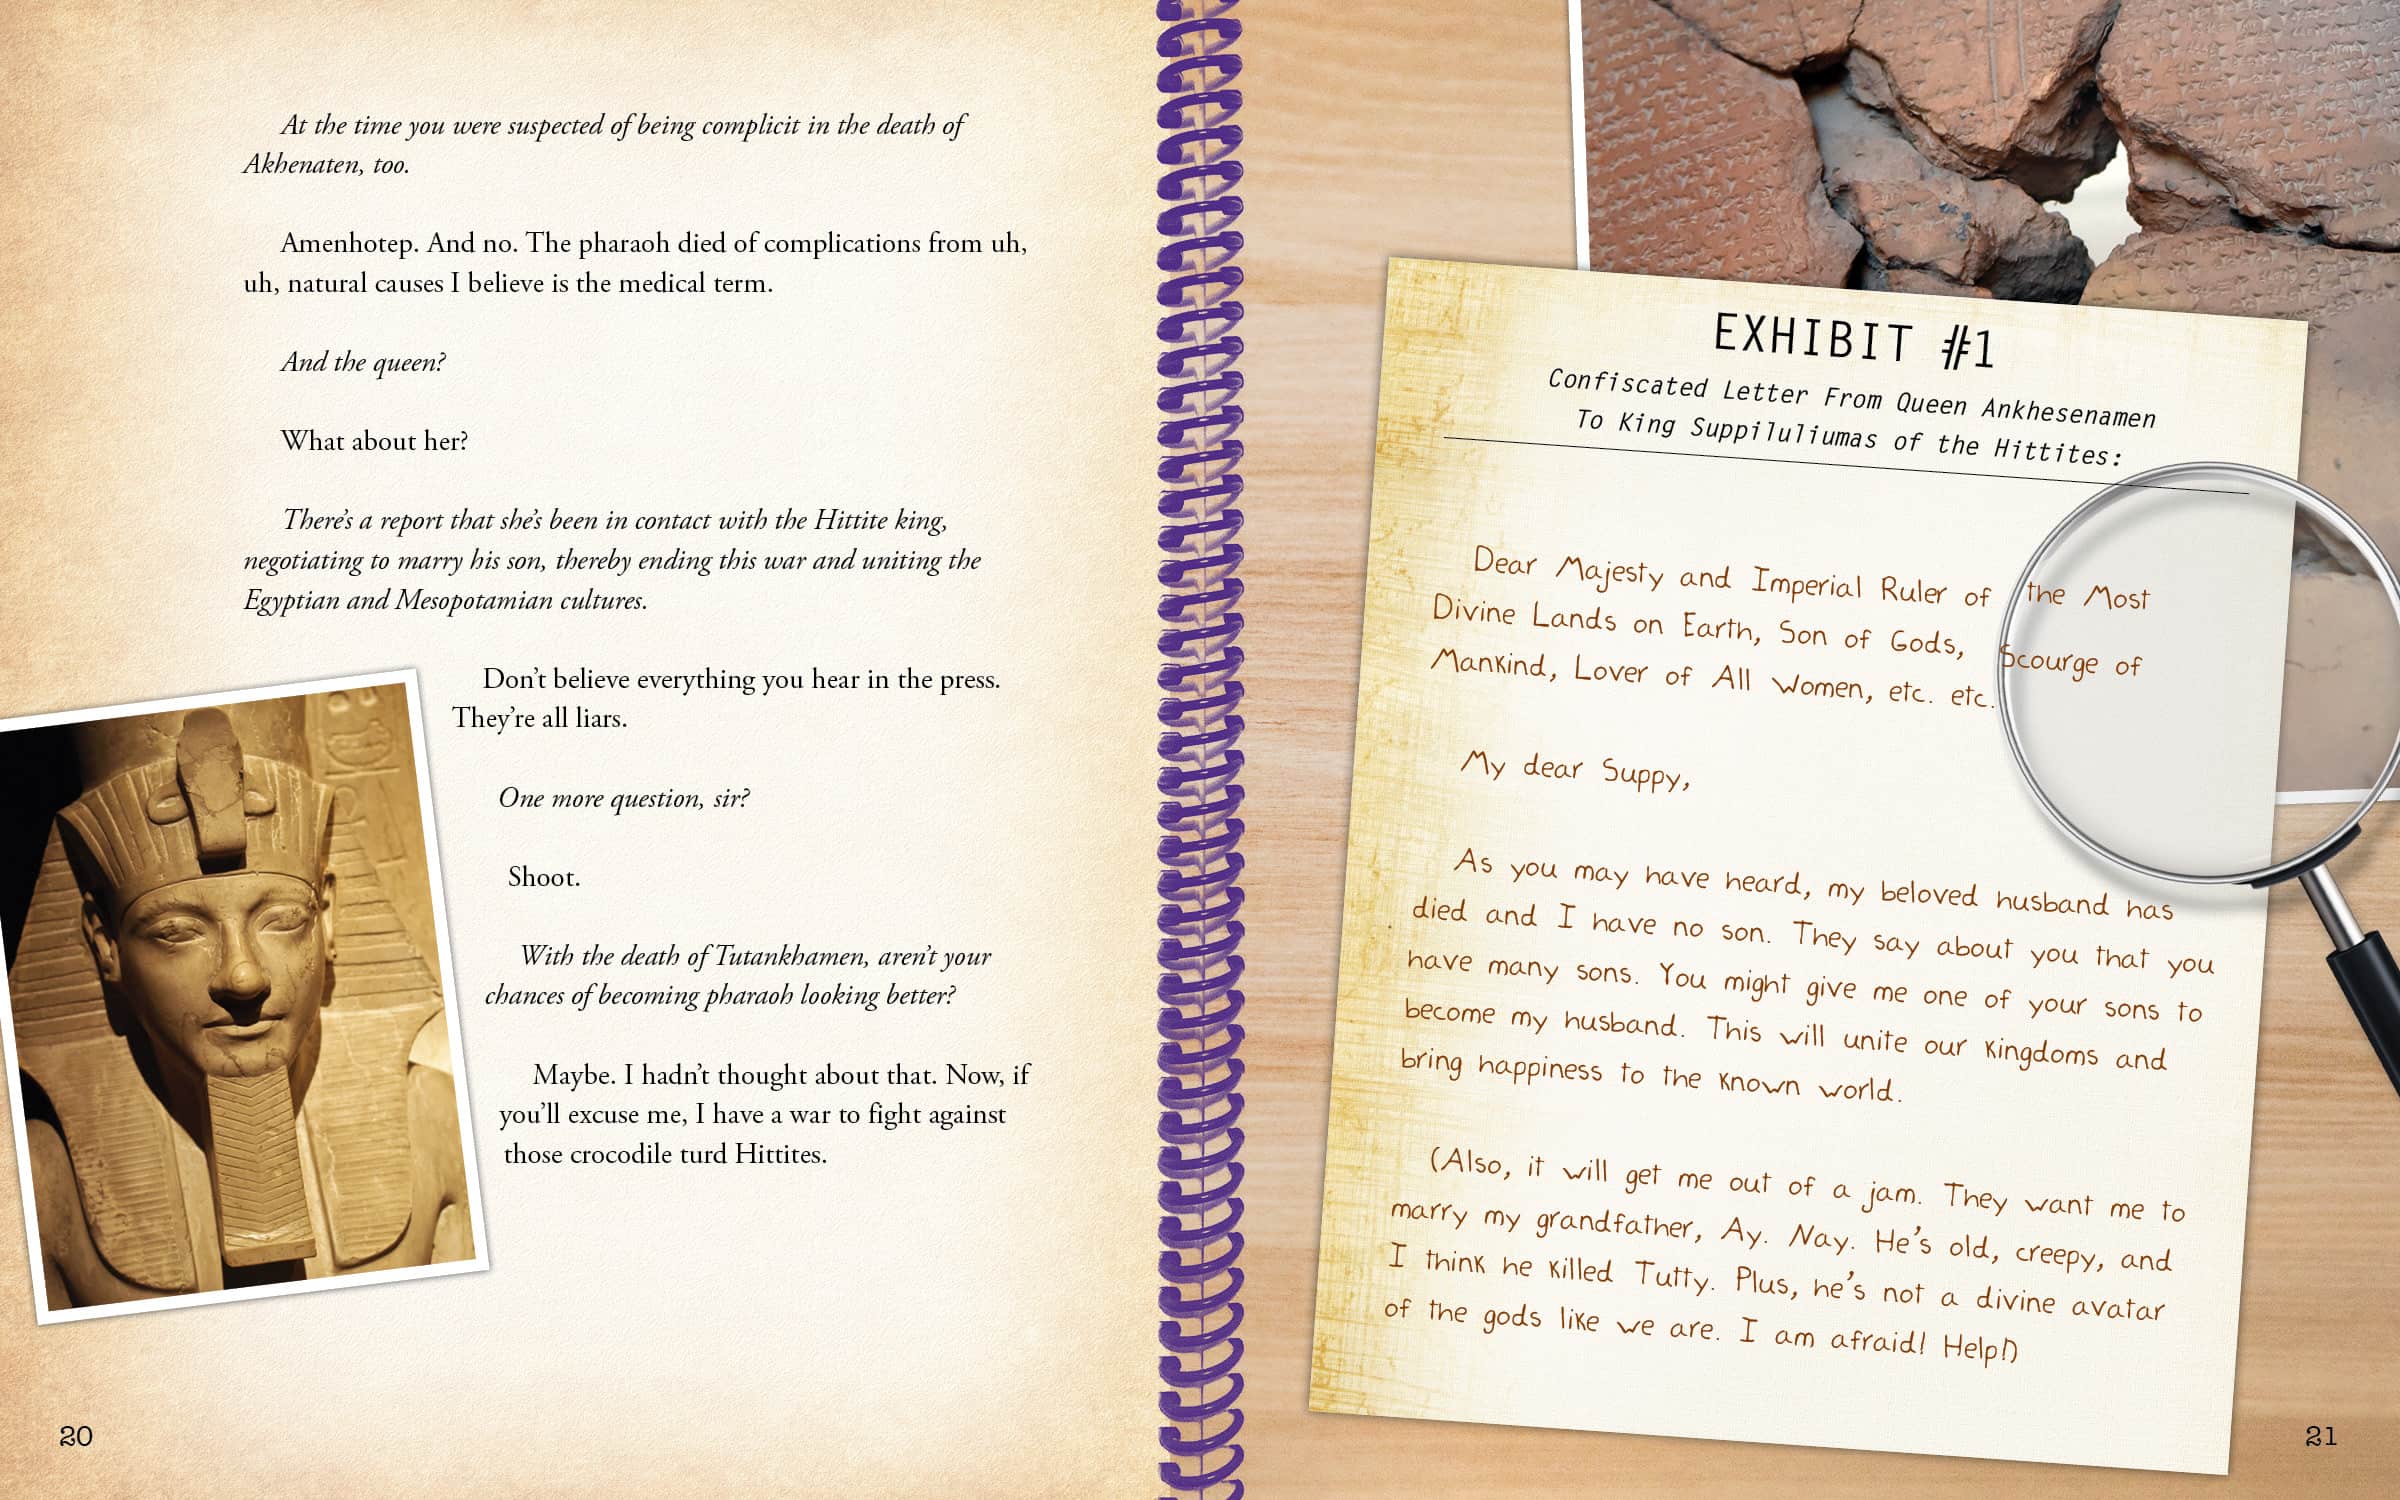 At the time you were suspected of being complicit in the death of
Akhenaten, too.
Amenhotep. And no. The pharaoh died of complications from uh,
uh, natural causes I believe is the medical term.
And the queen?
What about her?
There's a report that she's been in contact with the Hittite king,
negotiating to marry his son, thereby ending this war and uniting the
Egyptian and Mesopotamian cultures.
Don't believe everything you hear in the press.
They're all liars.
One more question, sir?
Shoot.
With the death of Tutankhamen, aren't your
chances of becoming pharaoh looking better?
Maybe. I hadn't thought about that. Now, if
you'll excuse me, I have a war to fight against
those crocodile turd Hittites.
20
EXHIBIT #1
Confiscated Letter From Queen Ankhesenamen
To King Suppiluliumas of the Hittites:
Dear Majesty and Imperial Ruler of the Most
Divine Lands on Earth, Son of Gods, Scourge of
Mankind, Lover of All Women, etc. etc.
My dear Suppy,
As you may have heard, my beloved husband has
died and I have no son. They say about you that you
have many sons. You might give me one of your sons to
become my husband. This will unite our kingdoms and
bring happiness to the known world.
(Also, it will get me out of a jam. They want me to
marry my grandfather, Ay. Nay. He's old, creepy, and
I think he killed Tutty. Plus, he's not a divine avatar
of the gods like we are. I am afraid! Help!)
21